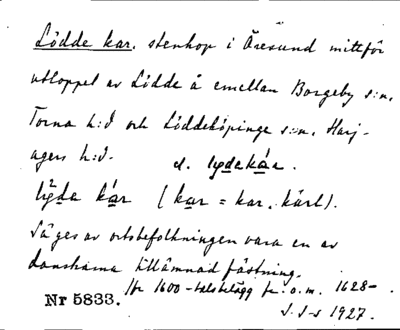 Lödde kar. stenhop i Öresund mittför
utloppet av Lödde å emellan Borgeby s:n,
Torna h:d och Löddeköpinge s:n, Harj-
agers h:d. d. lydekár.
lýda kár (kar = kar, kärl).
Säges av ortsbefolkningen vara en av
danskarna tillämnad fästning.
fr 1600-talsbelägg fr. o. m. 1628-
Nr 5833.
1927.